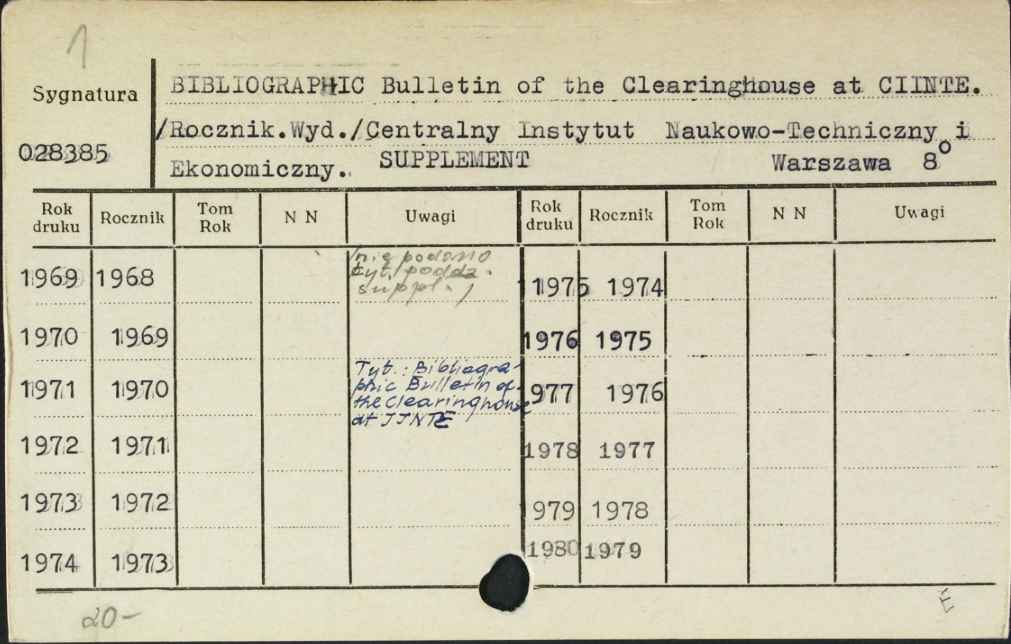 1
Sygnatura
028385
BIBLIOGRAPHIC Bulletin of the Clearinghouse at CIINTE.
/Rocznik.Wyd./Centralny Instytut Naukowo-Techniczny i
Ekonomiczny. SUPPLEMENT Warszawa 8°
Rok druku Rocznik Tom Rok N N Uwagi Rok druku Rocznik Tom Rok N N Uwagi
1969 1968 /nie podano
tyt./poddz.
suppl./
1975 1974
1970 1969 1976 1975
1971 1970 Tyt.: Bibliogra-
phic Bulletin of
the Clearinghouse
at IINTE
977 1976
1972 1971 1978 1977
1973 1972 1979 1978
1974 1973 1980 1979
20-
É